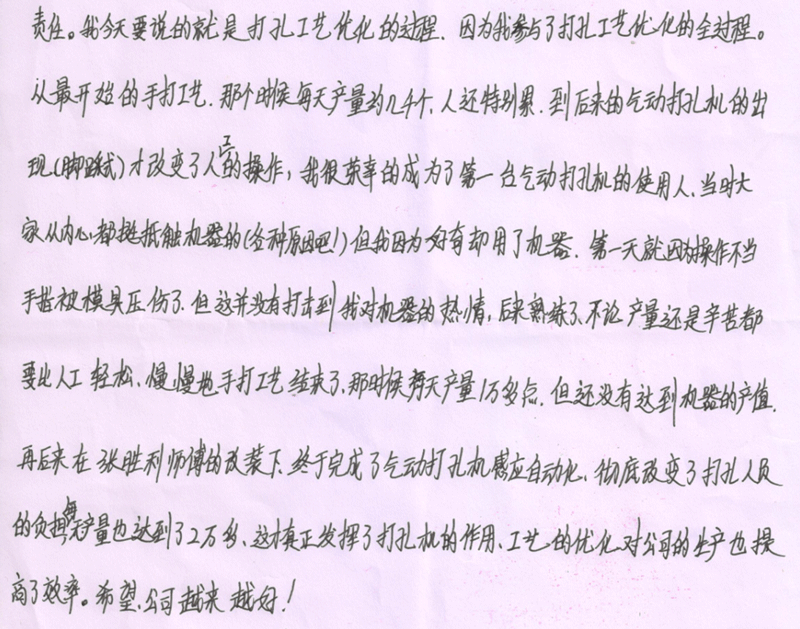 责任。我今天要说的就是打孔工艺优化的过程，因为我参与了打孔工艺优化的全过程。
从最开始的手打工艺，那个时候每天产量约几千个，人还特别累，到后来的气动打孔机的出
现（脚踩式）才改变了人工的操作，我很荣幸的成为了第一台气动打孔机的使用人，当时大
家从内心都挺抵触机器的（各种原因吧！）但我因为好奇却用了机器，第一天就因为操作不当
手指被模具压伤了，但这并没有打击到我对机器的热情，后来熟练了，不论产量还是辛苦都
要比人工轻松、慢慢地手打工艺结束了，那时候每天产量1万多点，但还没有达到机器的产值，
再后来在张胜利师傅的改装下，终于完成了气动打孔机感应自动化，彻底改变了打孔人员
的负担，每天产量也达到了2万多，这才真正发挥了打孔机的作用，工艺的优化对公司的生产也提
高了效率。希望公司越来越好！